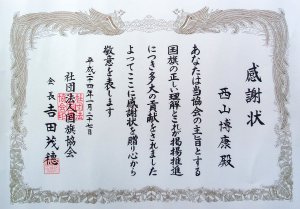 感謝状
西山博康殿
あなたは当協会の主旨とする
国旗の正しい理解とこれが掲揚推進
につき多大の貢献をされました
よってここに感謝状を贈り心から
敬意を表します
平成二十四年一月二十七日
社団法人国旗協会
会長 吉田茂穂